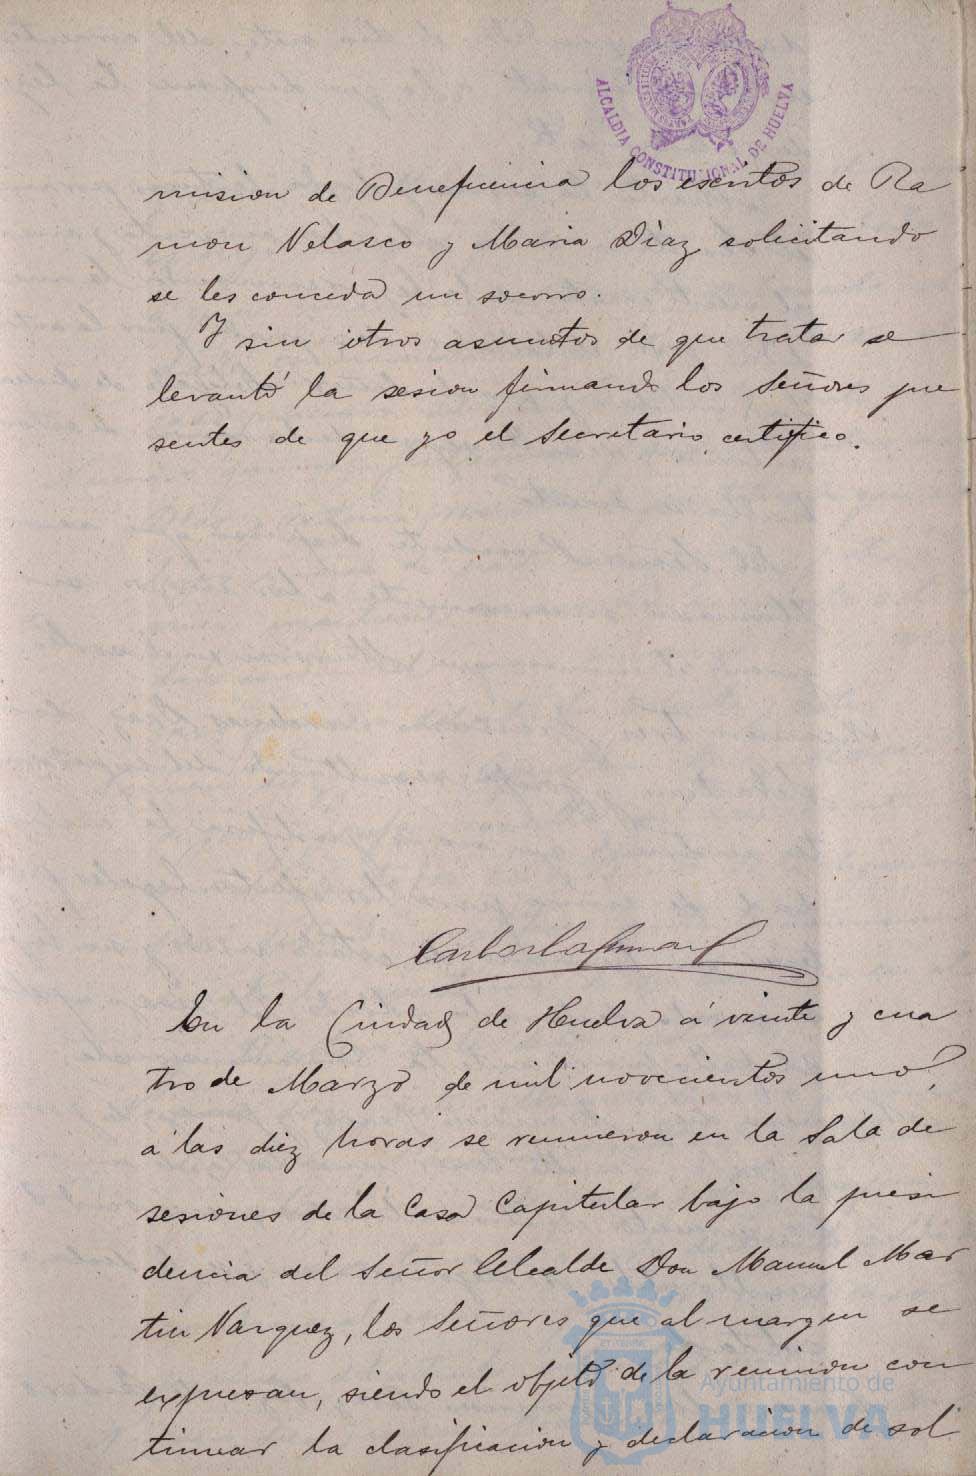 ALCALDIA CONSTITUCIONAL DE HUELVA
mision de Beneficencia los escritos de Ra
mon Velasco y Maria Diaz solicitando
se les conceda un socorro.
Y sin otros asuntos de que tratar se
levantó la sesion firmando los Señores pre
sentes de que yo el Secretario certifico.
En la Ciudad de Huelva á veinte y cua
tro de Marzo de mil novecientos uno,
á las diez horas se reunieron en la Sala de
sesiones de la Casa Capitular bajo la presi
dencia del Señor Alcalde Don Manuel Mar
tin Vazquez, los Señores que al margen se
expresan, siendo el objeto de la reunion con
tinuar la clasificacion y declaracion de sol
Ayuntamiento de
HUELVA